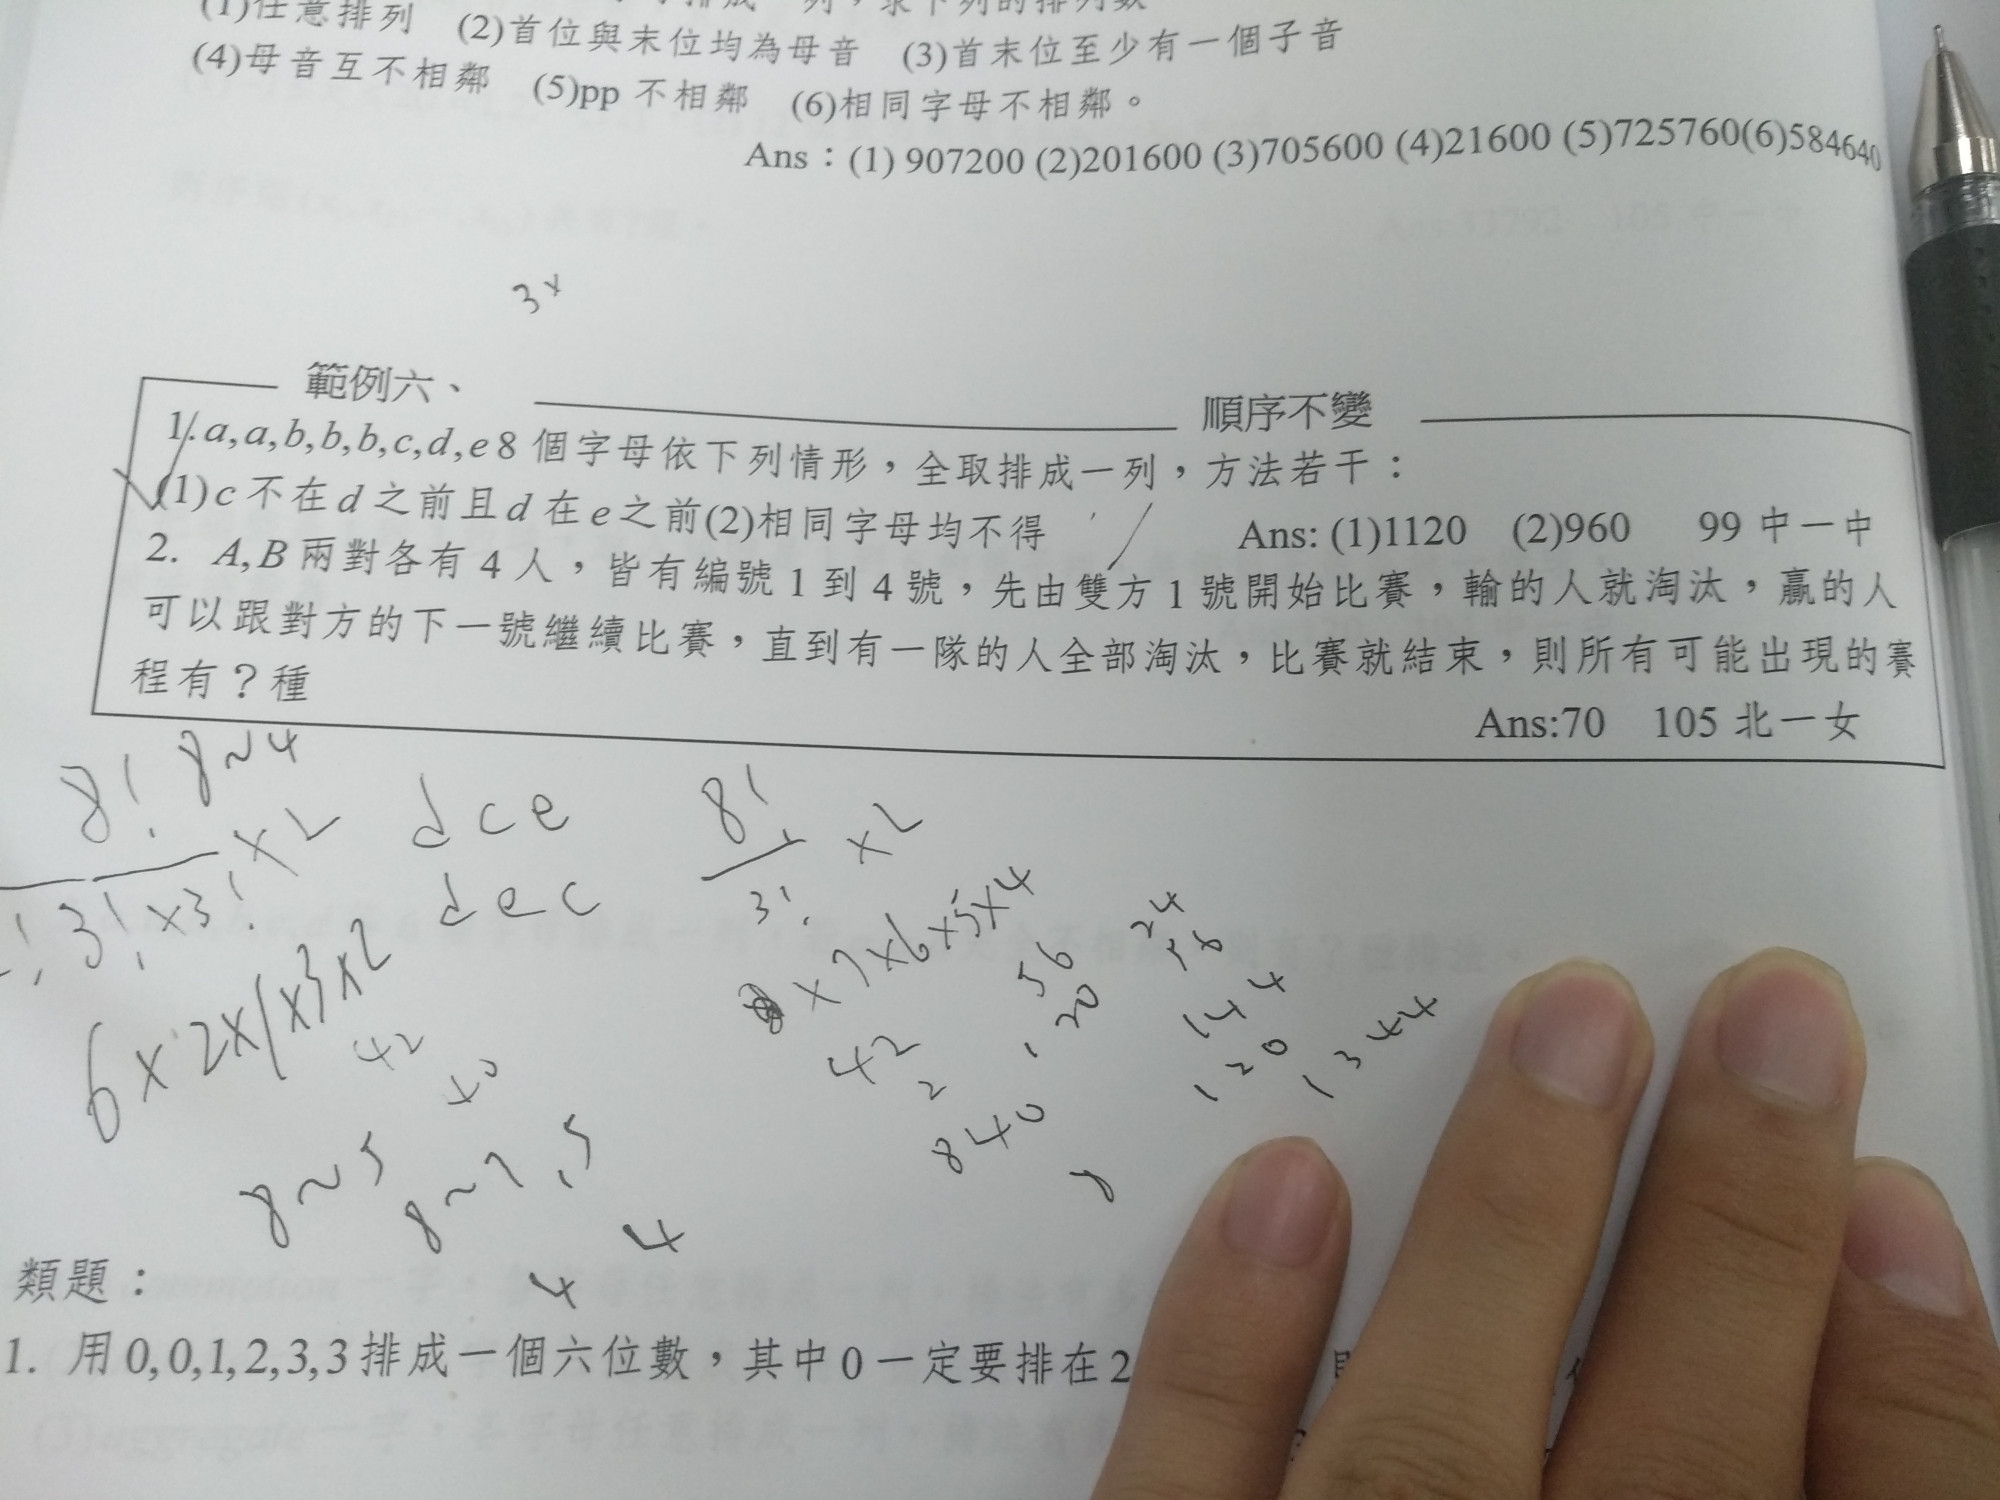 (1)任意排列 (2)首位與末位均為母音 (3)首末位至少有一個子音
(4)母音互不相鄰 (5)pp 不相鄰 (6)相同字母不相鄰。
Ans：(1) 907200 (2)201600 (3)705600 (4)21600 (5)725760(6)584640
3×
範例六、
順序不變
1.a,a,b,b,b,c,d,e 8 個字母依下列情形，全取排成一列，方法若干：
(1)c 不在 d 之前且 d 在 e 之前(2)相同字母均不得
Ans: (1)1120 (2)960 99 中一中
2. A,B 兩對各有 4 人，皆有編號 1 到 4 號，先由雙方 1 號開始比賽，輸的人就淘汰，贏的人
可以跟對方的下一號繼續比賽，直到有一隊的人全部淘汰，比賽就結束，則所有可能出現的賽
程有？種
Ans:70 105 北一女
8! 8~4
3!×3! ×2
dce
dec
8!
3! ×2
6×2×1×3×2
×7×6×5×4
42
56
120
24
144
120
1344
42
2
840
8~5
4
4
類題：
1. 用 0,0,1,2,3,3 排成一個六位數，其中 0 一定要排在 2